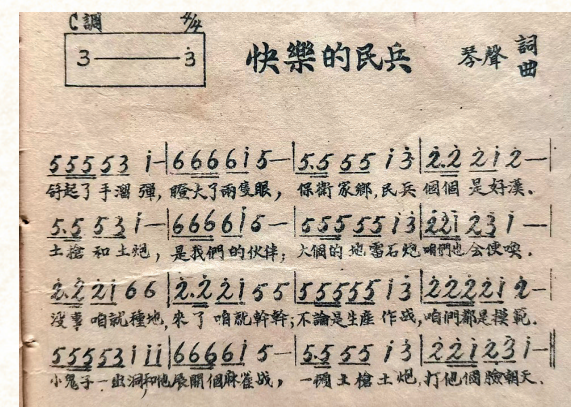 C調 4/4
3———3̇
快樂的民兵 琴聲 詞曲
5 5 5 5 3 i—|6 6 6 6 i 5—|5.5 5 5 i 3̇|2̇.2̇ 2̇ i 2̇—|
起了手溜弹,瞪大了兩隻眼,保衛家鄉,民兵個個是好漢、
5.5 5 3 i—|6 6 6 6 i 5—|5 5 5 5 5 i 3̇|2̇ 2̇ i 2̇ 3̇ i —|
土槍和土炮,是我們的伙伴;大個的地雷石炮咱們也会使喚.
2̇.2̇ 2̇ i 6 6|2̇.2̇ 2̇ i 5 5|5 5 5 5 5 i 3̇|2̇ 2̇ 2̇ 2̇ i 2̇—|
没事咱就種地,來了咱就幹幹;不論是生產作战,咱們都是模範.
5 5 5 5 3 i i i|6 6 6 6 i 5—|5.5 5 5 i 3̇|2̇ 2̇ i 2̇ 3̇ i—||
小鬼子一出洞,和他展開個麻雀战,一頓土槍土炮,打他個臉朝天.